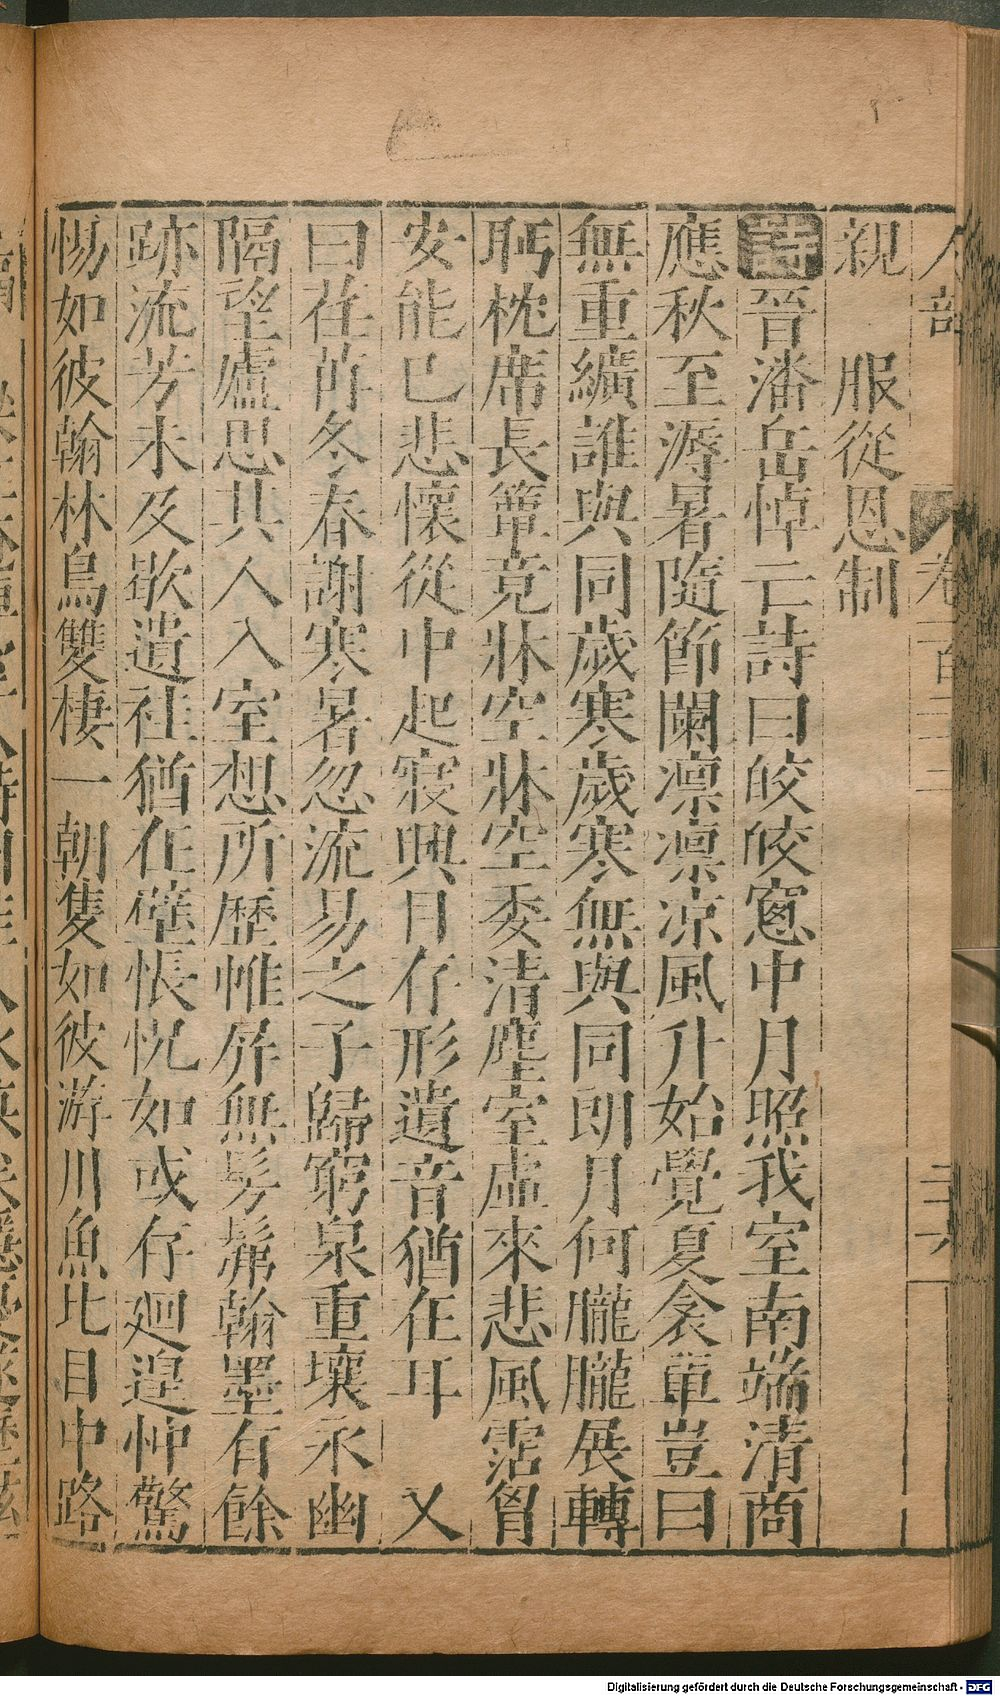 親　服從恩制
詩晉潘岳悼亡詩曰皎皎窻中月照我室南端清商
應秋至溽暑隨節闌凛凛凉風升始覺夏衾單豈曰
無重纊誰與同歲寒歲寒無與同朗月何朧朧展轉
眄枕席長簟竟牀空牀空委清塵室虛來悲風霑胷
安能已悲懷從中起寢興目存形遺音猶在耳　又
曰荏苒冬春謝寒暑忽流易之子歸窮泉重壤永幽
隔望廬思其人入室想所歷帷屏無髣髴翰墨有餘
跡流芳未及歇遺挂猶在壁悵怳如或存廻遑忡驚
惕如彼翰林鳥雙棲一朝隻如彼游川魚比目中路
Digitalisierung gefördert durch die Deutsche Forschungsgemeinschaft - DFG